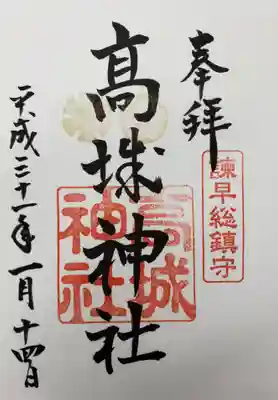 奉拝
諫早総鎮守
髙城神社
高城
神社
平成三十一年一月十四日